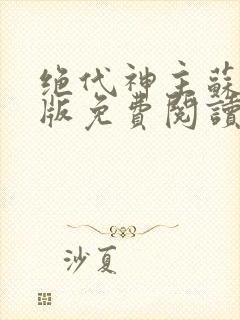 绝代神主蘇
版免費閱讀
沙夏